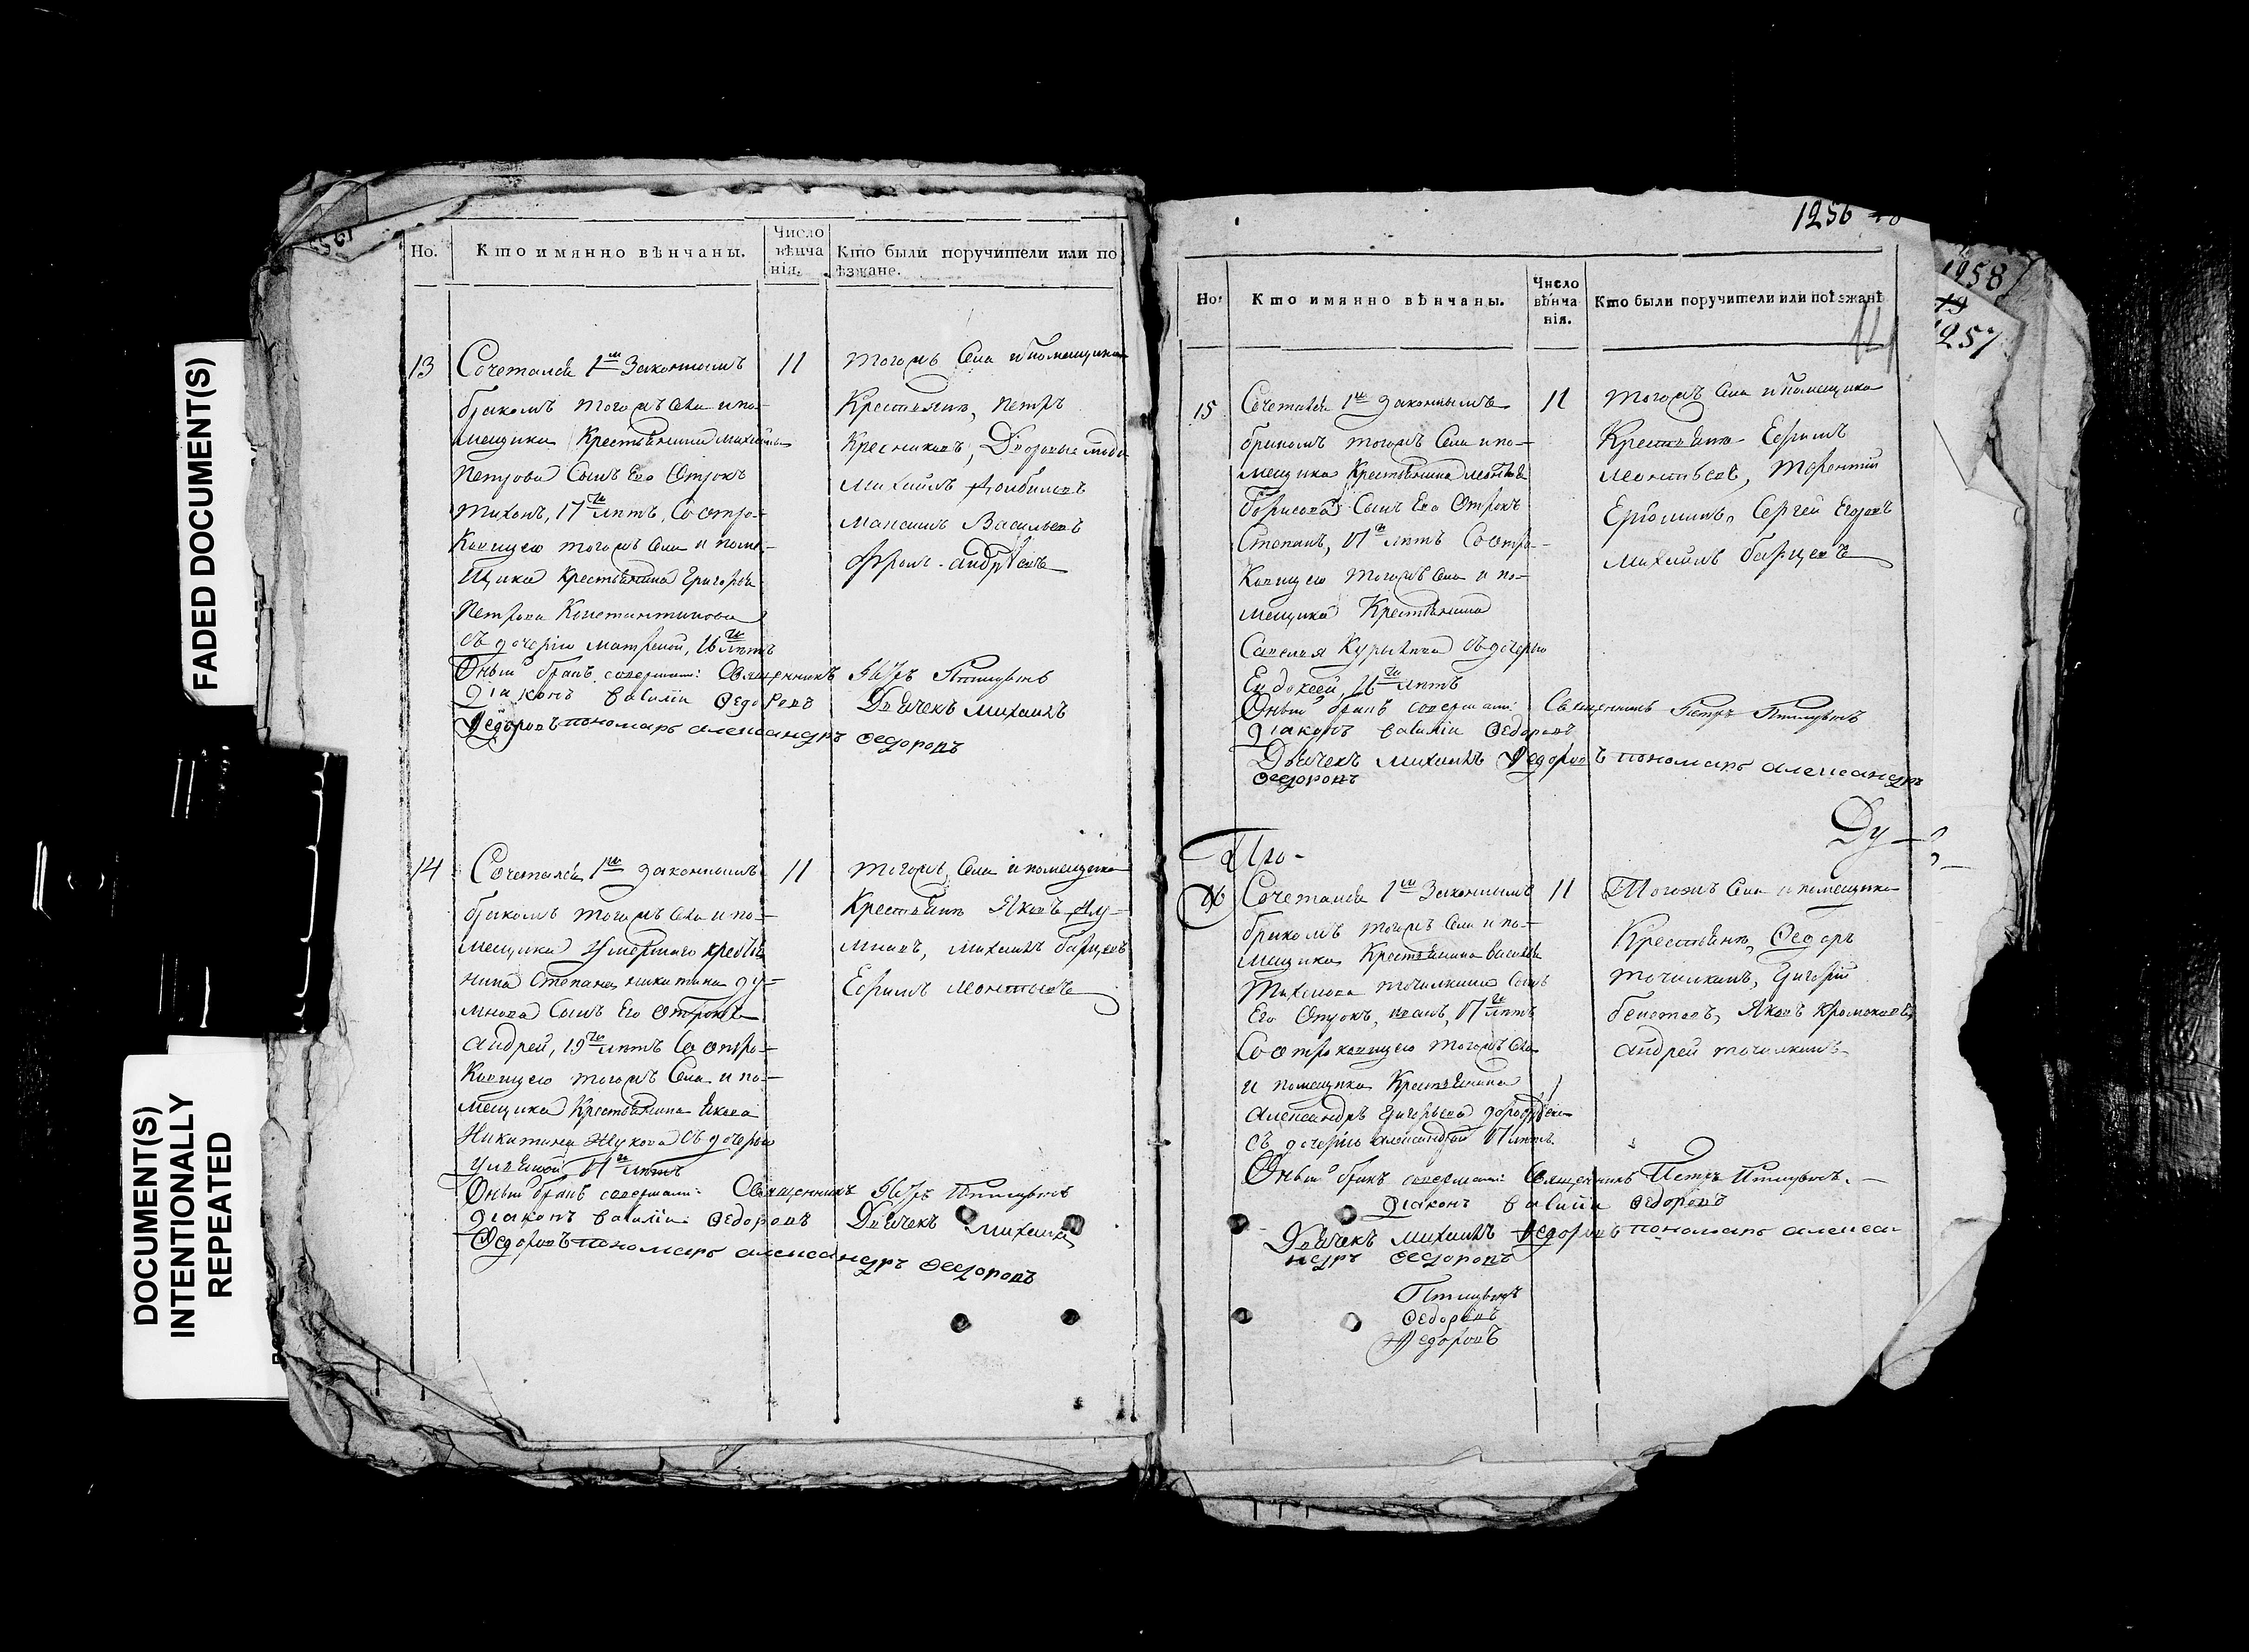 FADED DOCUMENT(S)
DOCUMENT(S)
INTENTIONALLY
REPEATED
Но.
Кто имянно вѣнчаны.
Число
вѣнча
нія.
Кто были поручители или по
ѣзжане.
13
Сочетался 1м Законнымъ
бракомъ тогожъ села и по-
мещика Крестьянина Михайлы
Петрова Сынъ Его Отрокъ
Тихонъ, 17ти лѣтъ, Со отро-
ковицею тогожъ Села и поме-
щика Крестьянина Григорья
Петрова Константинова
съ дочерью Матреной, 16ти лѣтъ
11
тогожъ Села и помещика
Крестьянъ, Петръ
Михайлъ
Максимъ Васильевъ
Фролъ Андреевъ
Оный бракъ совершали: Священникъ Петръ
Діаконъ Василій Федоровъ Дьячекъ Михаилъ
Федоровъ пономарь Александръ Федоровъ
14
Сочетался 1м законнымъ
бракомъ тогожъ села и по-
мещика Умершаго кресть
нина Степана никитина ду-
мнова Сынъ Его Отрокъ
Андрей, 19ти лѣтъ Со отро-
ковицею тогожъ Села и по-
мещика Крестьянина Якова
Никитина Жукова Съ дочерью
Ульяной, 17ти лѣтъ
11
тогожъ Села и помещика
Крестьянъ Яковъ
Михаилъ
Ефимъ Леонтьевъ
Оный бракъ совершали: Священникъ Петръ
Діаконъ Василій Федоровъ Дьячекъ Михаилъ
Федоровъ пономарь Александръ Федоровъ
1256
Но:
Кто имянно вѣнчаны.
Число
вѣнча
нія.
Кто были поручители или поѣзжанѣ
15
Сочетался 1м законнымъ
бракомъ тогожъ Села и по-
мещика Крестьянина Леонтья
Борисова Сынъ Его Отрокъ
Степанъ, 17ти лѣтъ Со отро-
ковицею тогожъ Села и по-
мещика Крестьянина
Савелья съ дочерью
Евдокеей, 16ти лѣтъ
11
тогожъ Села и помещика
Крестьянъ Ефимъ
Леонтьевъ, Терентій
Сергей Егоровъ
Михайлъ
Оный бракъ совершали: Священникъ Петръ
Діаконъ Василій Федоровъ
Дьячекъ Михаилъ Федоровъ пономарь Александръ
Федоровъ
Ду-
16
Сочетался 1м Законнымъ
бракомъ тогожъ Села и по-
мещика Крестьянина Василья
Тихонова Точилкина Сынъ
Его Отрокъ, 17ти лѣтъ
Со отроковицею тогожъ Села
и помещика Крестьянина
Александръ Григорьева
съ дочерью 17 лѣтъ
11
Тогожъ Села и помещика
Крестьянъ, Федоръ
Точилкинъ, Григорій
Яковъ
Андрей Точилкинъ
Оный бракъ совершали: Священникъ Петръ
Діаконъ Василій Федоровъ
Дьячекъ Михаилъ Федоровъ пономарь Алекса
ндръ Федоровъ
Федоровъ
Федоровъ
1258
19
1257